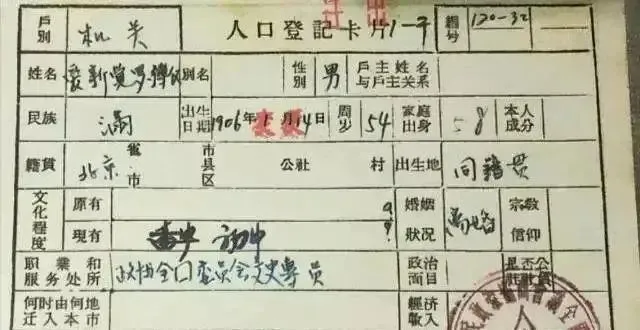 迁出
戶別 机关 人口登記卡片 1-子 編号 120-32
姓名 爱新觉罗 別名 性別 男 戶主姓名与戶主关系
民族 满 出生日期 1906年1月14日 周岁 54 家庭出身 本人成分
籍貫 北京 省市 市县区 公社 村 出生地 同籍贯
文化程度 原有 婚姻狀况 宗教信仰
現有 初中
职业和服务处所 政协全囗委员会文史专员 政治面目 是否公社社員
何时由何地迁入本市 經济收入